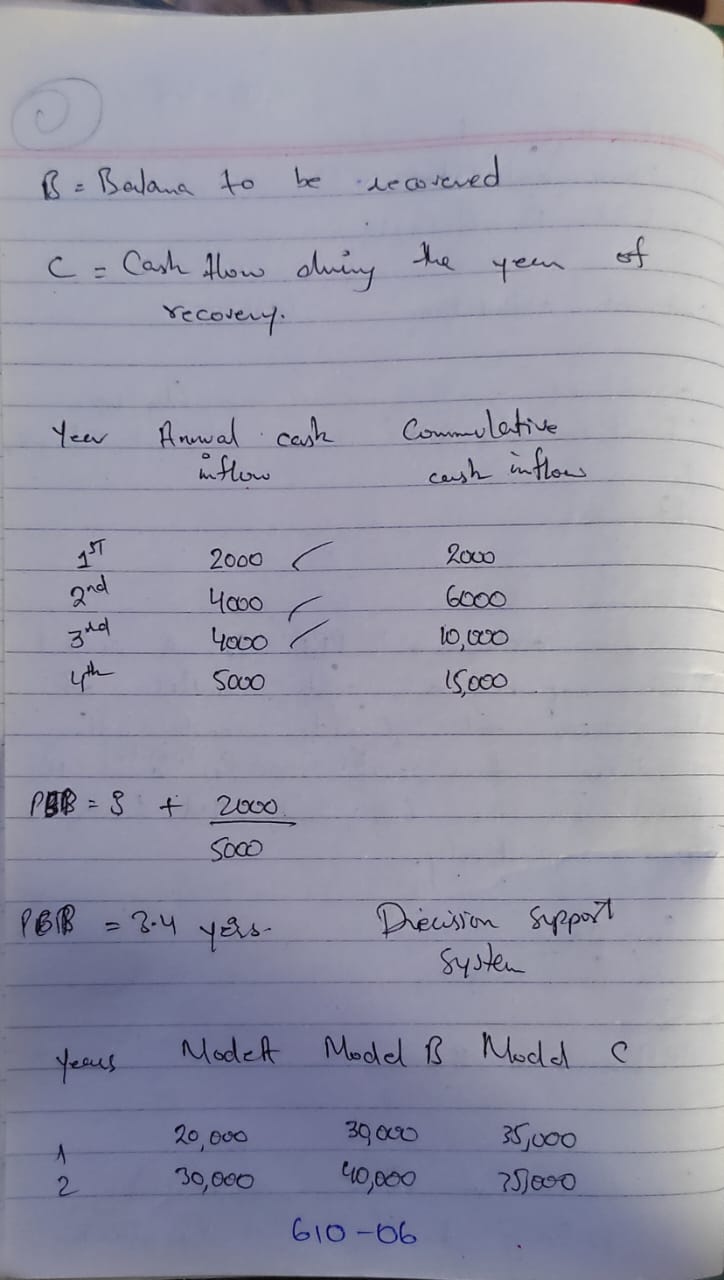 B = Balana to be recovered
C = Cash flow during the year of
recovery.
Year Annual cash Commulative
inflow cash inflow
1ST 2000 2000
2nd 4000 6000
3rd 4000 10,000
4th 5000 15,000
PBB = 3 + 2000
5000
PBB = 3.4 yers. Diecision Support
System
Years Model A Model B Model C
1 20,000 30,000 35,000
2 30,000 40,000 35,000
610-06